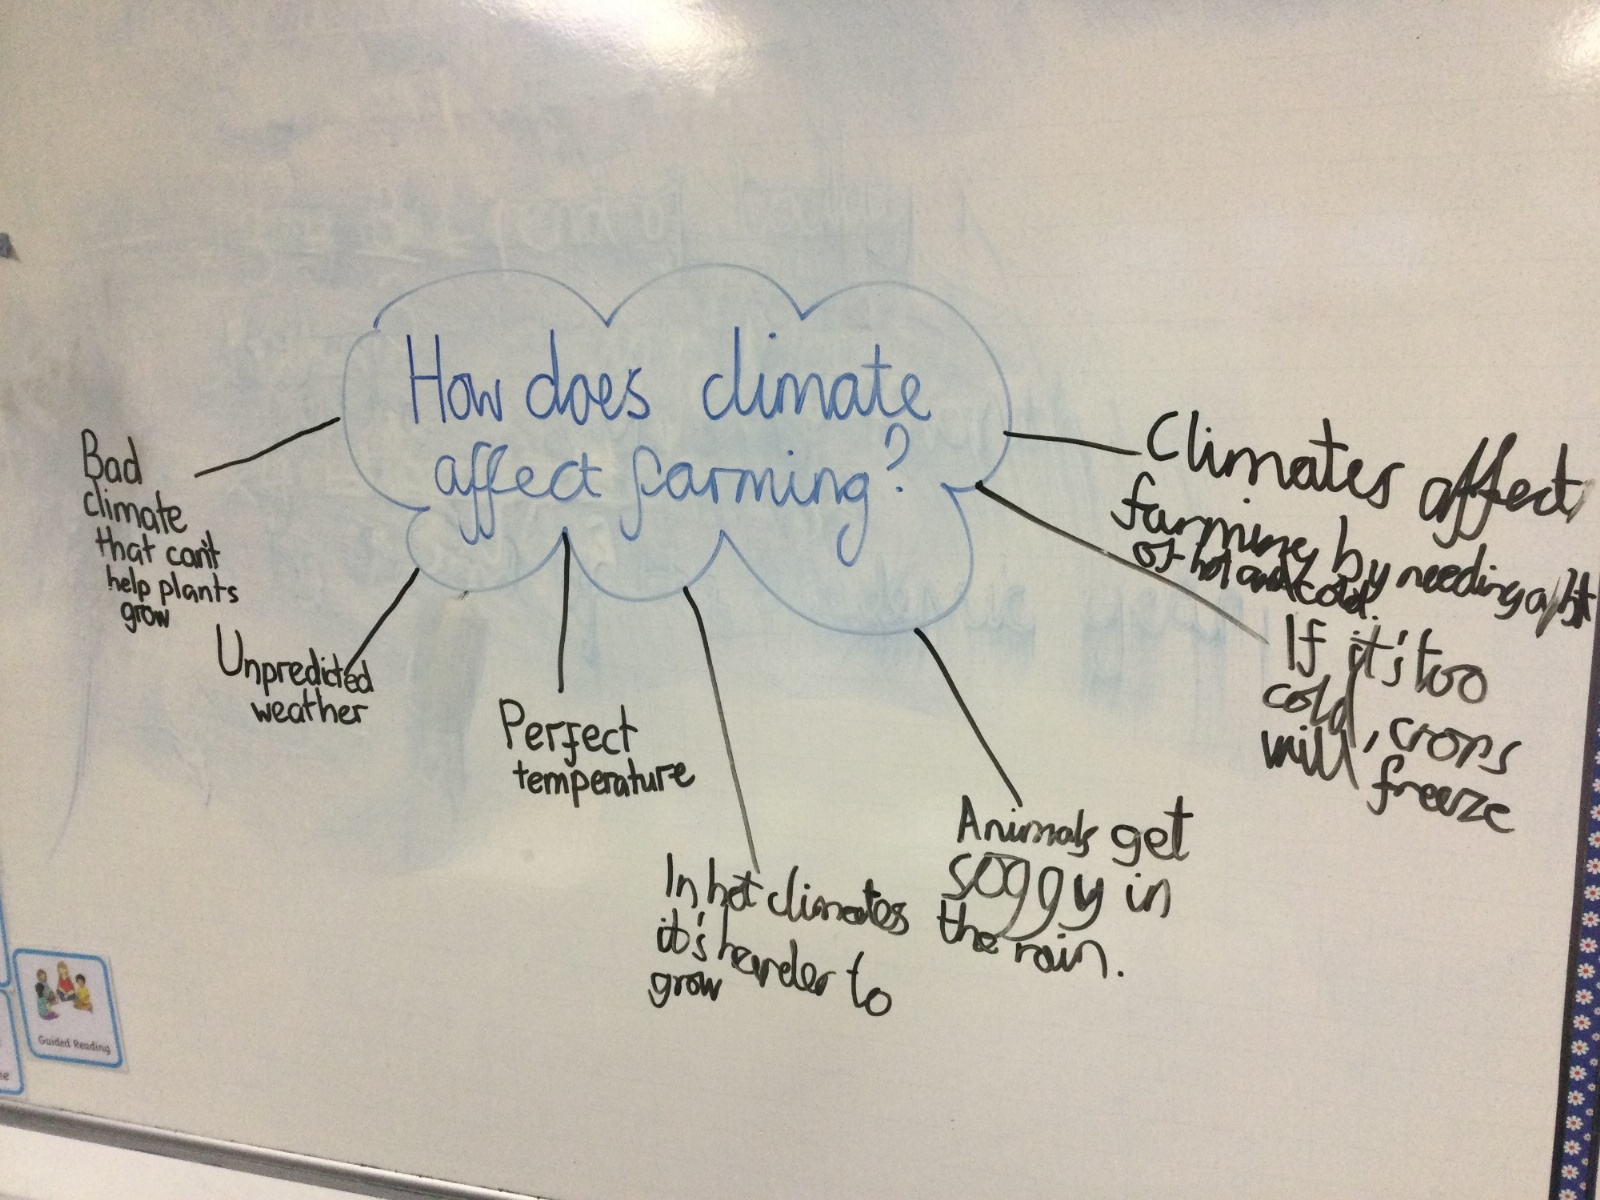 How does climate
affect farming?
Bad
climate
that can't
help plants
grow
Unpredicted
weather
Perfect
temperature
In hot climates
it's harder to
grow
Animals get
soggy in
the rain.
Climates affect
farming by needing a bit
of hot and cold.
If it's too
cold, crops
will freeze
Guided Reading